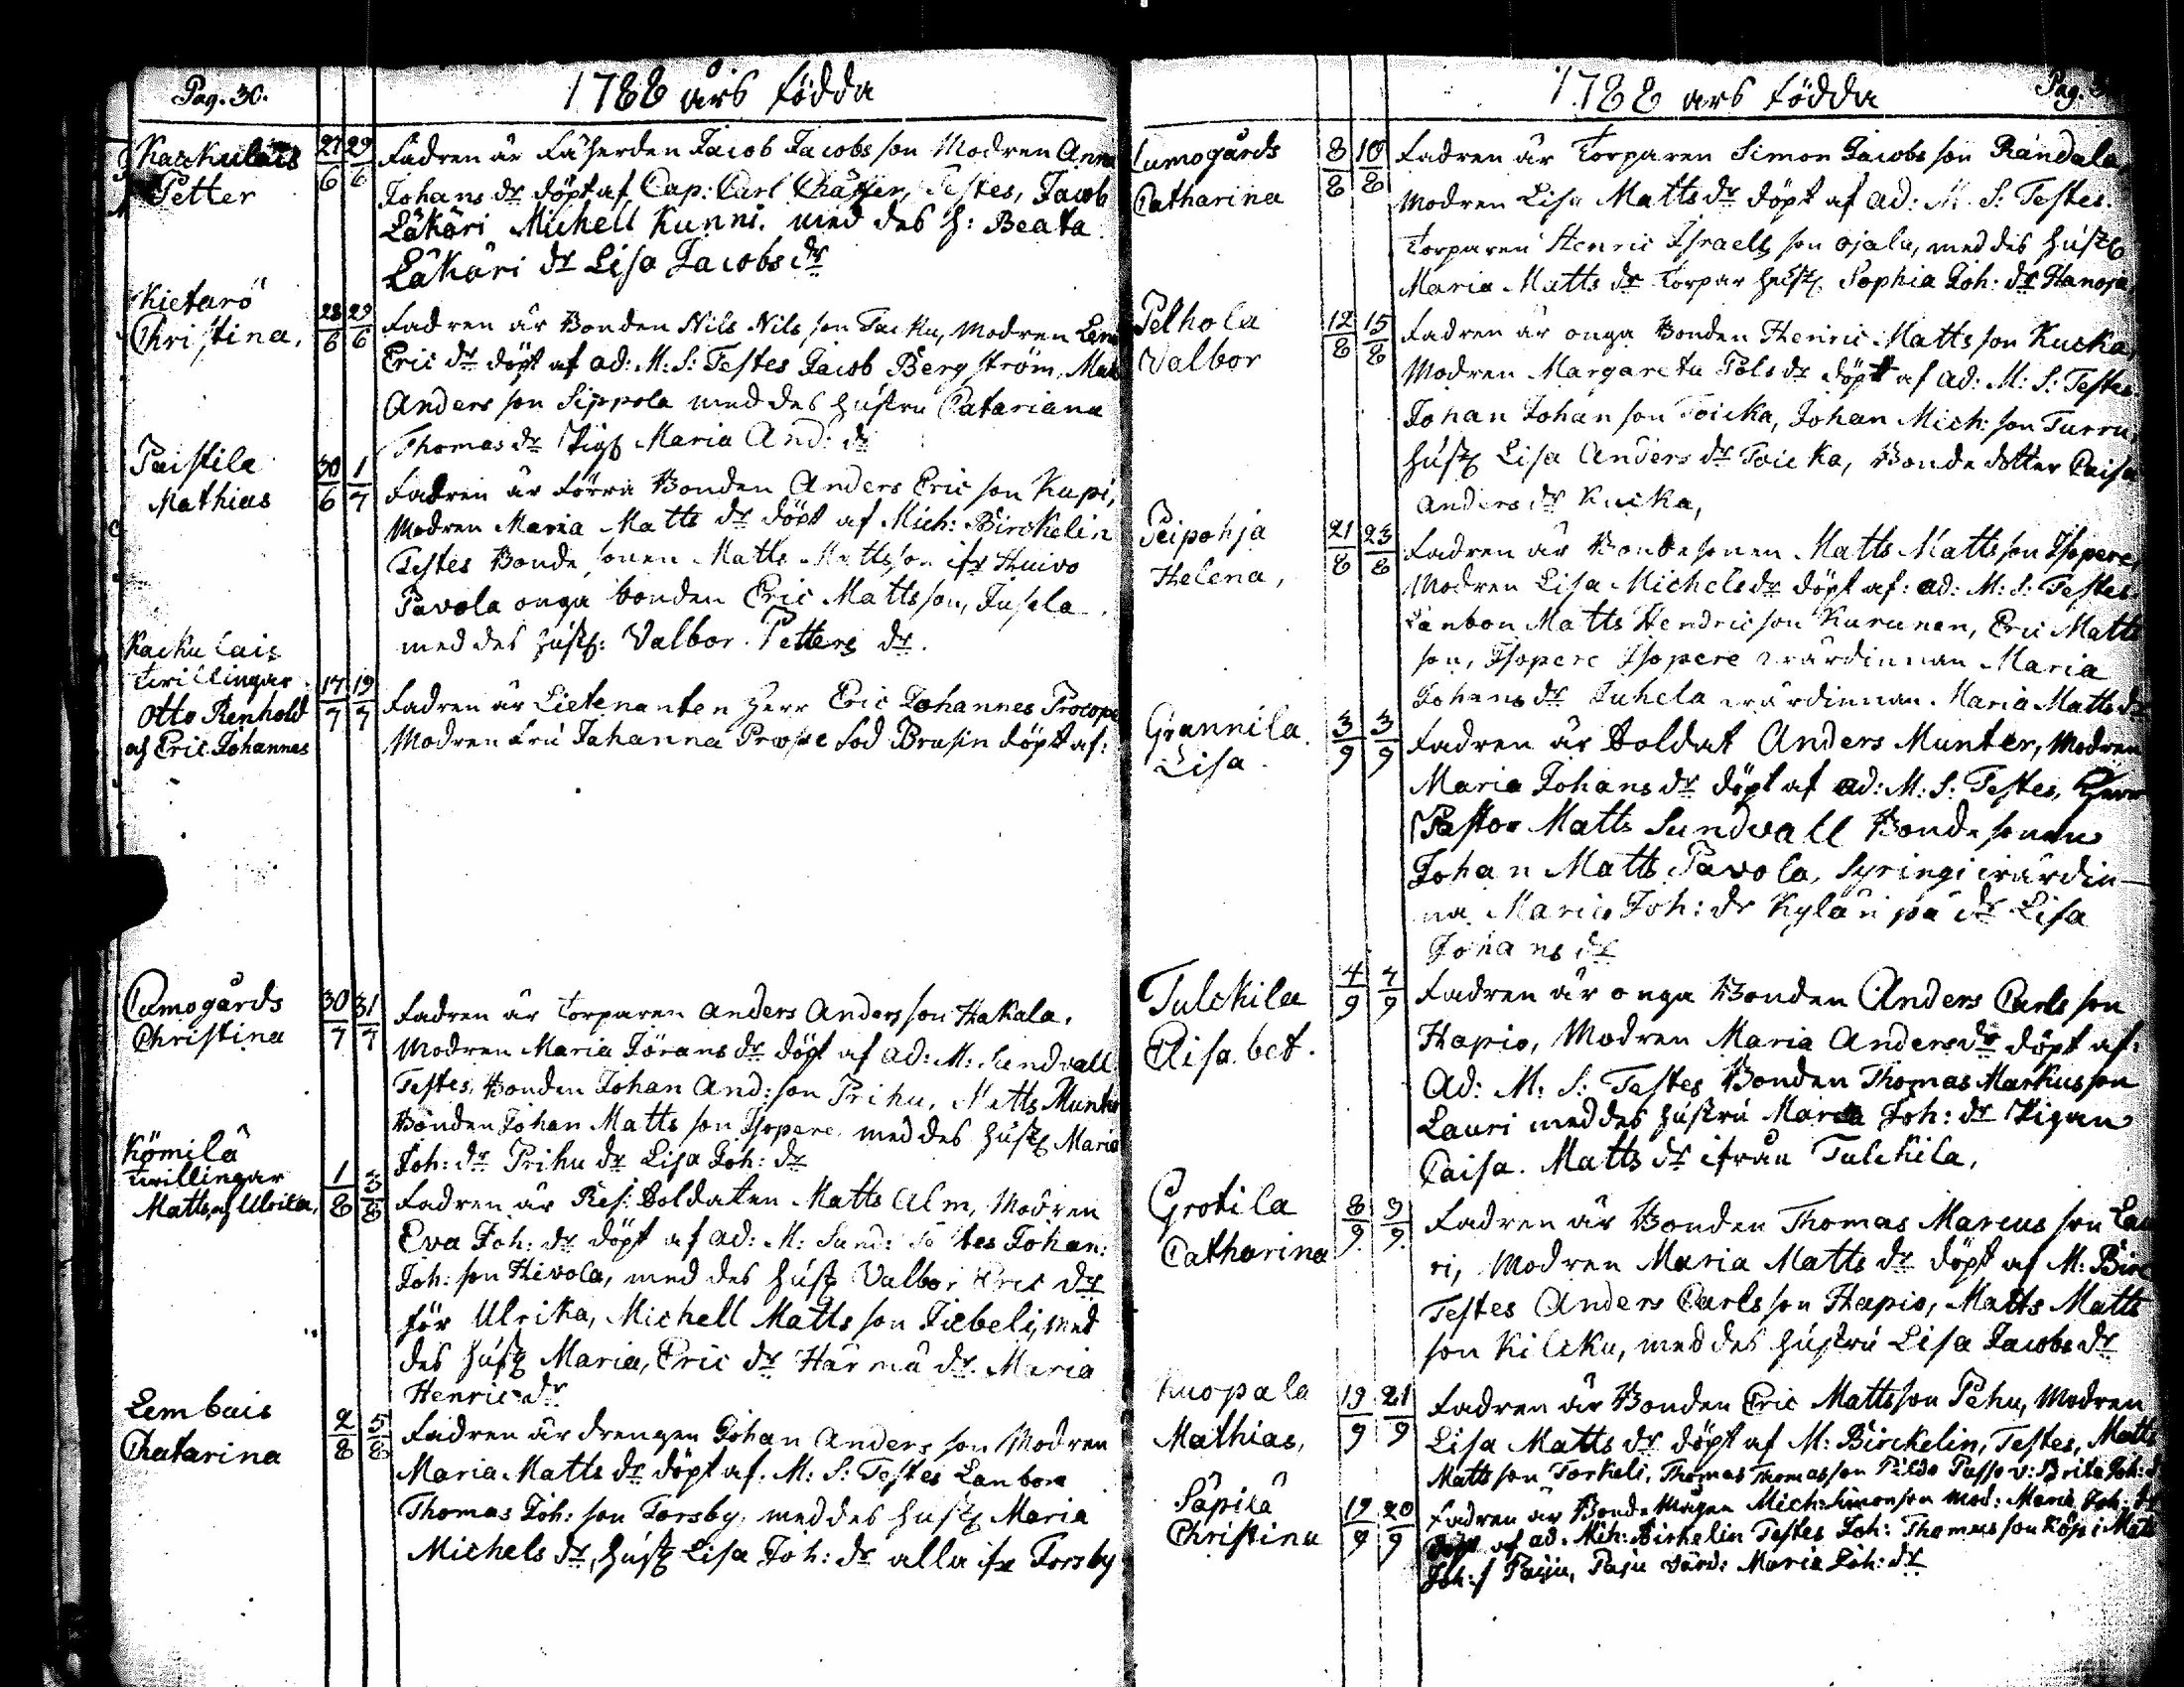 Pag. 30.
1788 års Födda
Kackulais
Petter
27/6 29/6
Fadren är Fäherden Jacob Jacobs son Modren Anna
Johans dr döpt af Cap: Carl Testes, Jacob
Läkäri Michell Kunni. med des h: Beata
Läkäri dr Lisa Jacobs dr
Kietarö
Christina,
28/6 29/6
Fadren är Bonden Nils Nils son Tacku, Modren
Eric dr döpt af ad: M: S: Testes Jacob Berg ström,
Anders son Sippola med des hustru Catariana
Thomas dr Pig Maria And: dr
Paistila
Mathias
30/6 1/7
Fadren är Förra Bonden Anders Eric son Kupi,
Modren Maria Matts dr döpt af Mich: Birckelin
Testes Bonde sonen Matts Matts son ifr Huivo
Pavola onga bonden Eric Matts son, Jusela
med des hust: Valbor Petters dr.
Kacku lais
Tvillingar
Otto Renhold
och Eric Johannes
17/7 19/7
Fadren är Lietenanten Herr Eric Johannes Procope
Modren Fru Johanna Född Brusin döpt af:
Cumogårds
Christina
30/7 31/7
Fadren är Torparen Anders Anders son Hakala,
Modren Maria Jörans dr döpt af ad: M: Sundvall
Testes, Bonden Johan And: son Prihu, Matts Munter
Bonden Johan Matts son Isopere, med des hust Maria
Joh: dr Prihu dr Lisa Joh: dr
Kömilä
Tvillingar
Matts, och Ulrica,
1/8 3/8
Fadren är Res: Soldaten Matts Alm, Modren
Eva Joh: dr döpt af ad: M: Sund: Testes Johan:
Joh: son Hivola, med des hust Valbor Eric dr
för Ulrika, Michell Matts son, med
des hust Maria, Eric dr Härmä dr Maria
Henric dr
Lembais
Chatarina
2/8 5/8
Fadren är drengen Johan Anders son Modren
Maria Matts dr döpt af. M: S: Testes Lanbon
Thomas Joh: son Torsby, med des hust Maria
Michels dr, hust Lisa Joh: dr alla ifr Torsby
Pag.
1788 års Födda
Cumogårds
Catharina
8/8 10/8
Fadren är Torparen Simon Jacobs son Randala,
Modren Lisa Matts dr döpt af ad: M. S: Testes.
Torparen Henric Israels son ojala, med des hust
Maria Matts dr Torpar hust Sophia Joh: dr Hanoja
Pelhola
Valbor
12/8 15/8
Fadren är onga Bonden Henric Matts son Kucka,
Modren Margareta Påls dr döpt af ad: M: S: Testes.
Johan Johan son Toicka, Johan Mich: son Turru,
hust Lisa Anders dr Toicka, Bonde dotter Caisa
Anders dr Kucka,
Peipohja
Helena,
21/8 23/8
Fadren är Bondesonen Matts Matts son Isopere,
Modren Lisa Michels dr döpt af: ad: M: S: Testes
Lanbon Matts Hendric son Kurunen, Eric Matts
son, Isopere Isopere wärdinnan Maria
Johans dr Juhela wärdinnan. Maria Matts dr
Grannila.
Lisa.
3/9 3/9
Fadren är Soldat Anders Munter, Modren
Maria Johans dr döpt af ad: M: S: Testes, Herr
Pastor Matts Sundvall Bonde sonen
Johan Matts Pavola, Syringi wärdin
na Maria Joh: dr Kylänpä dr Lisa
Johans dr
Tulckila
Elisa bet.
4/9 4/9
Fadren är onga Bonden Anders Carls son
Hapio, Modren Maria Anders dr döpt af:
Ad: M: S: Testes Bonden Thomas Markus son
Lauri med des hustru Maria Joh: dr Pigan
Caisa. Matts dr ifrån Tulckila,
Grotila
Catharina
8/9 9/9
Fadren är Bonden Thomas Marcus son Lau
ri, Modren Maria Matts dr döpt af M: Birc
Testes Anders Carls son Hapio, Matts Matts
son Kilcku, med des hustru Lisa Jacobs dr
Kuopala
Mathias,
19/9 21/9
Fadren är Bonden Eric Matts son Pehu, Modren
Lisa Matts dr döpt af M: Birckelin, Testes, Matts
Matts son Torkeli, Thomas Thomas son Pildo Passo v: Brita Joh: d
Säpilä
Christina
19/9 20/9
Fadren är Bonde Mågen Mich: Simon son Mod: Maria Joh: dr
döpt af ad. Mich: Birkelin Testes Joh: Thomas son Köpi Matts
Joh: s Paiju, Paju värd: Maria Joh: dr